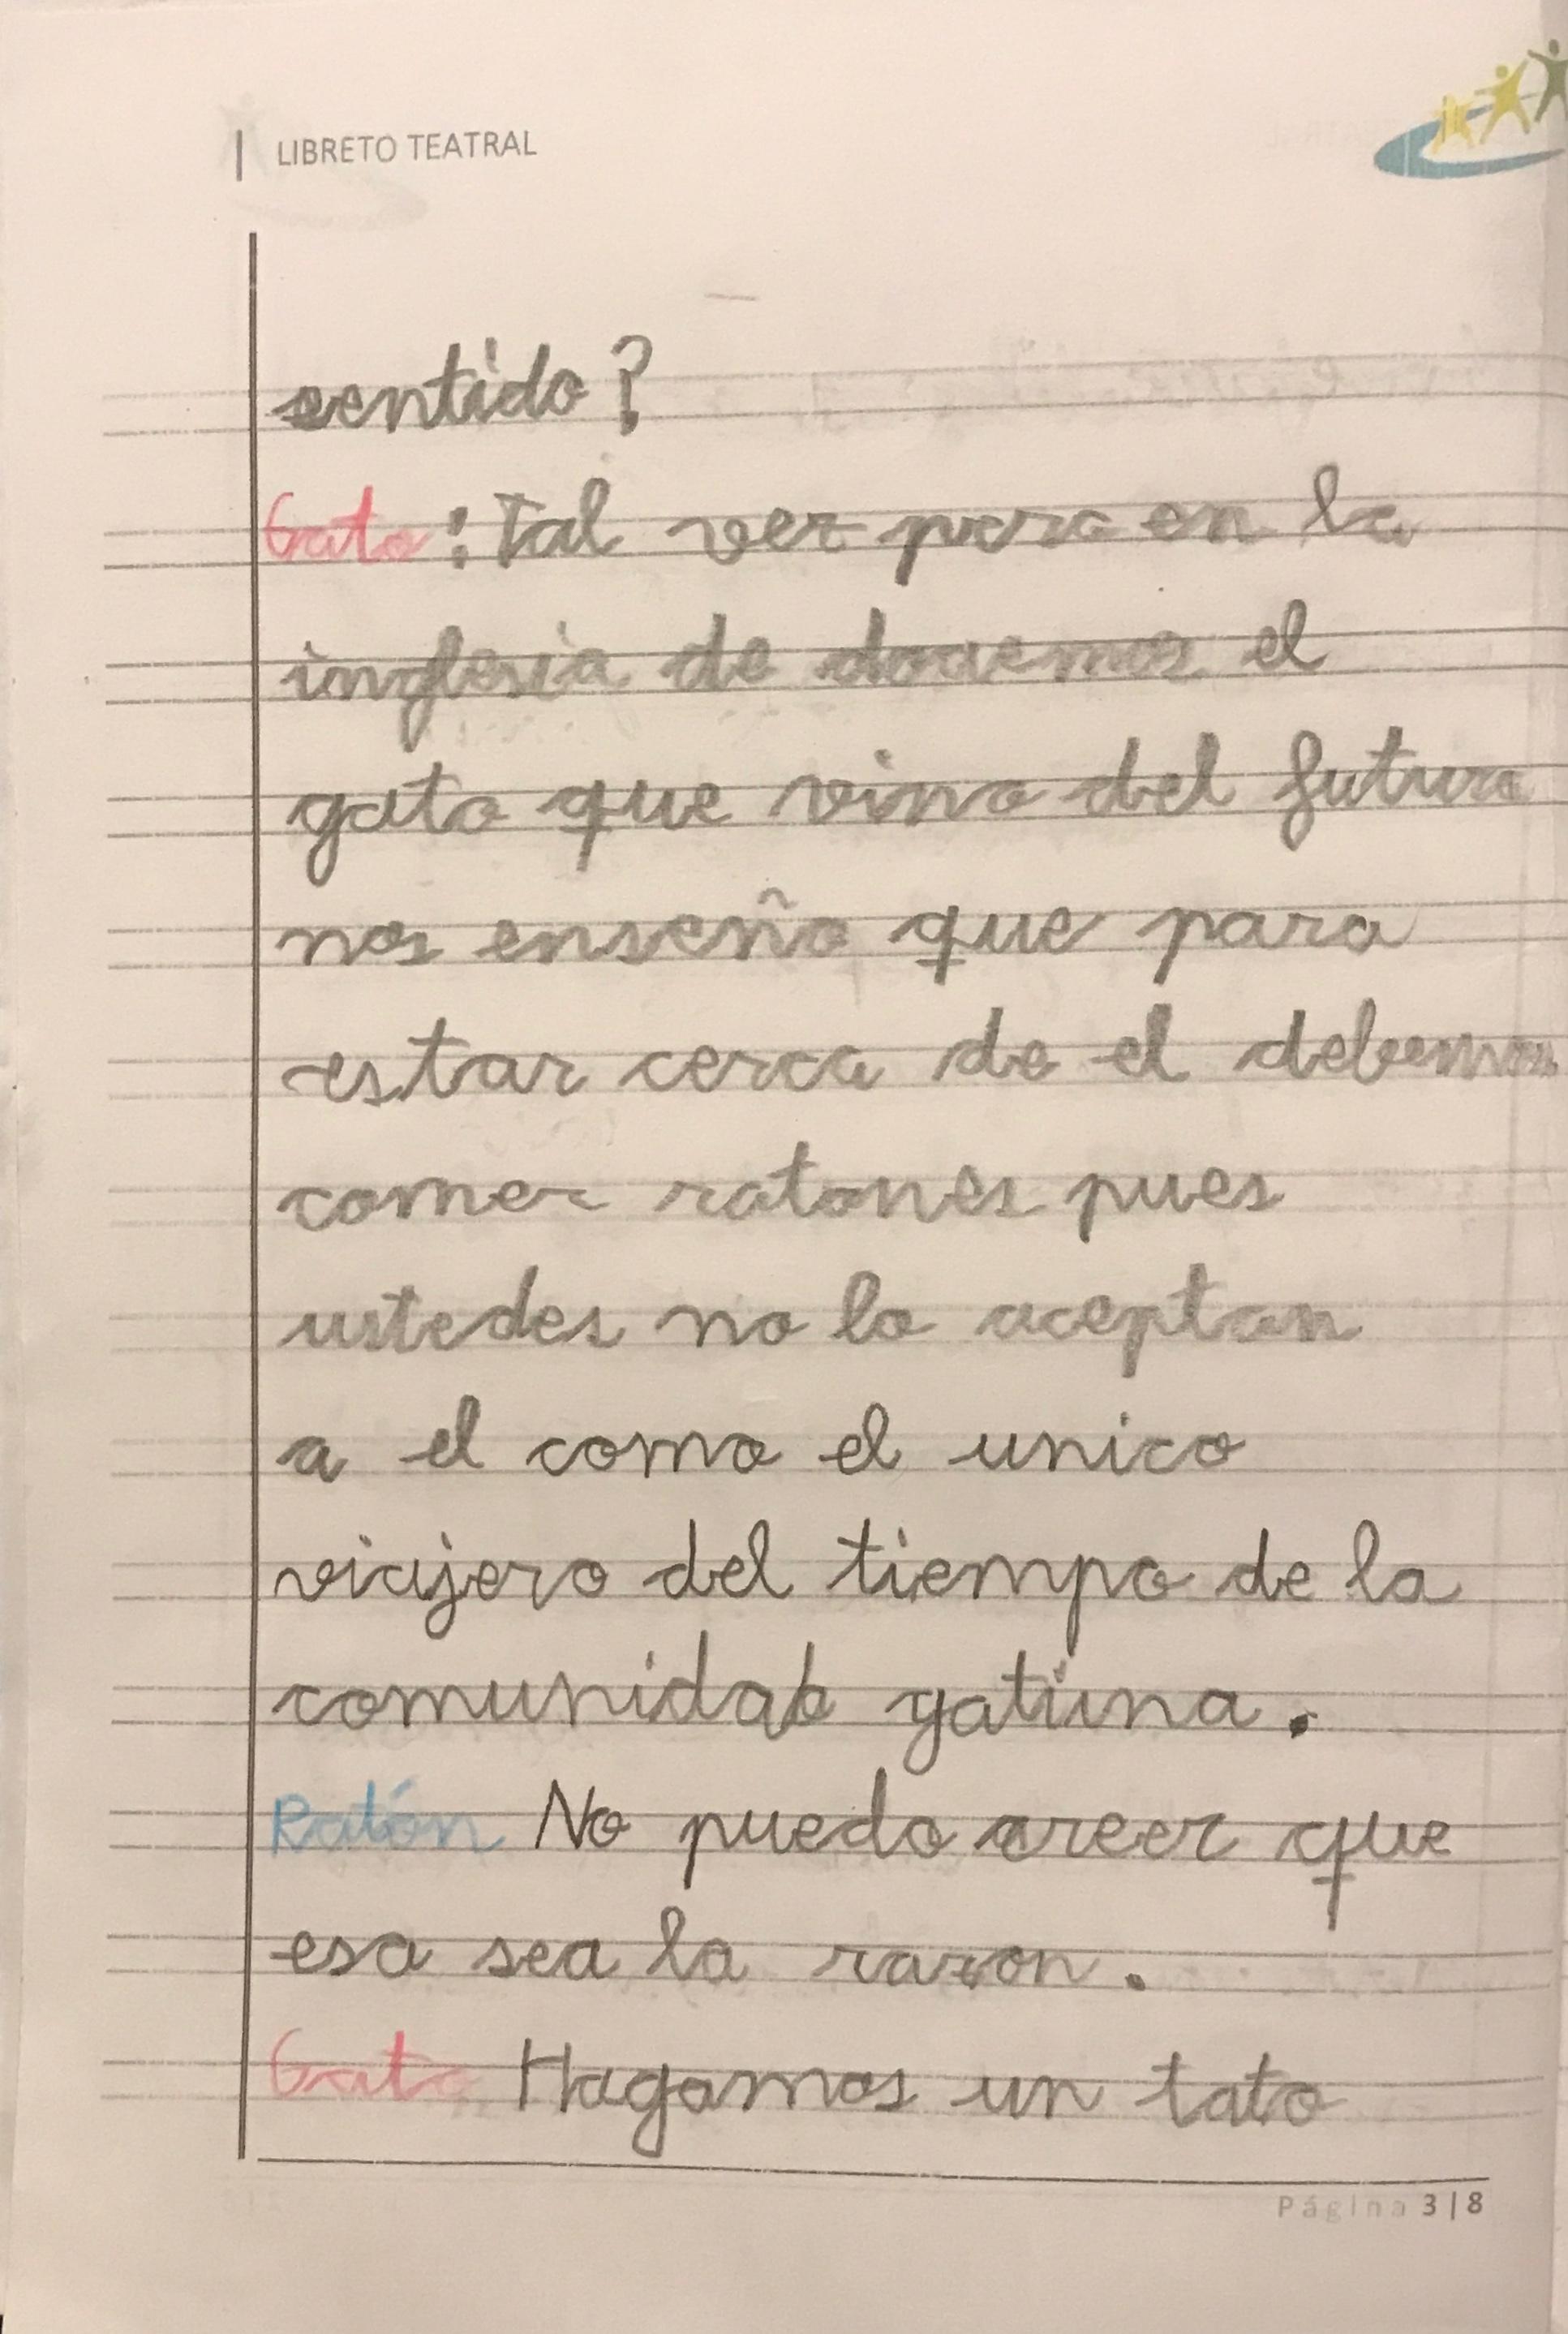 LIBRETO TEATRAL
sentido?
Gato: Tal vez pero en la
inglesia de el
gato que vino del futuro
nos enseño que para
estar cerca de el debemos
comer ratones pues
ustedes no lo aceptan
a el como el unico
viajero del tiempo de la
comunidab gatiuna.
Ratón No puedo creer que
esa sea la razon.
Gato Hagamos un tato
Página 3|8